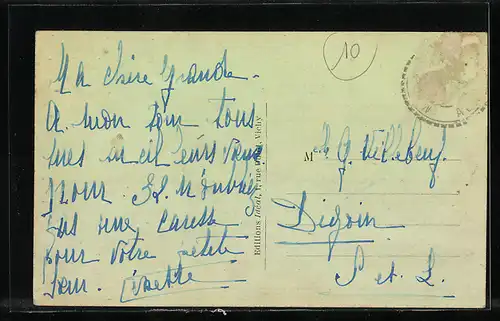 Ma chère grande.
A mon tour tous
mes meilleurs vœux
pour 32. N'oubliez
pas une caresse
pour votre petite
sœur. Lisette
10
Editions Idéal, rue Vichy
M G. Villebeuf
Digoin
S et L.